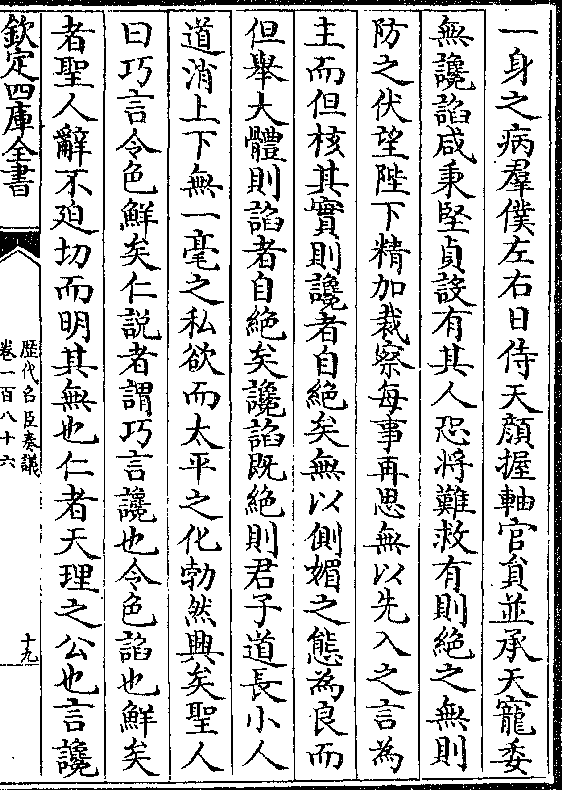 一身之病羣僕左右日侍天顏握軸官貟並承天寵委
無讒諂咸秉堅貞設有其人恐將難救有則絶之無則
防之伏望陛下精加裁察每事再思無以先入之言為
主而但核其實則讒者自絶矣無以側媚之態為良而
但舉大體則諂者自絶矣讒諂既絶則君子道長小人
道消上下無一毫之私欲而太平之化勃然興矣聖人
曰巧言令色鮮矣仁説者謂巧言讒也令色諂也鮮矣
者聖人辭不廹切而明其無也仁者天理之公也言讒
欽定四庫全書
歴代名臣奏議
卷一百八十六
十九